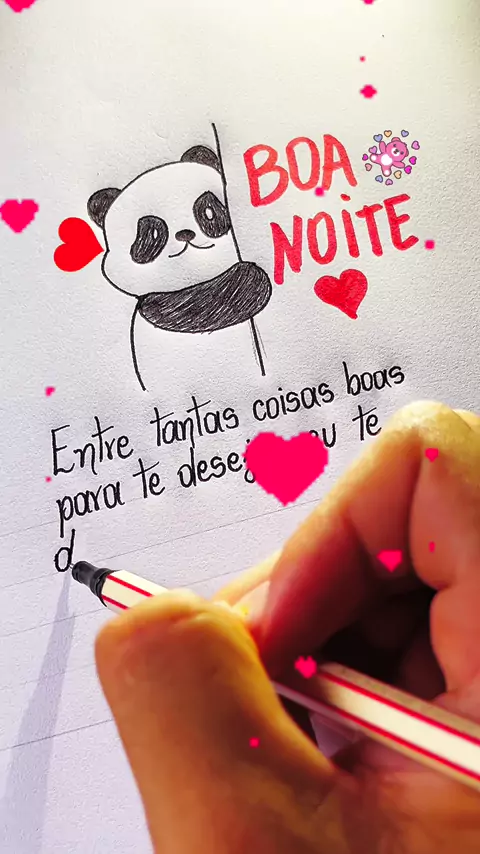 BOA
NOITE
Entre tantas coisas boas
para te te
d